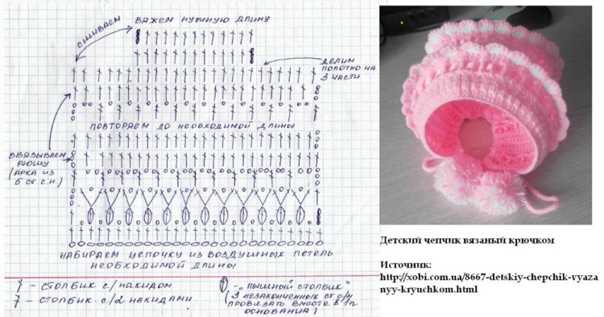 ВЯЖЕМ НУЖНУЮ ДЛИНУ
СШИВАЕМ
ДЕЛИМ
ПОЛОТНО НА
3 ЧАСТИ
ПОВТОРЯЕМ ДО НЕОБХОДИМОЙ ДЛИНЫ
ВВЯЗЫВАЕМ
РЮШУ
(АРКА ИЗ
6 СТ. С.Н.)
НАБИРАЕМ ЦЕПОЧКУ ИЗ ВОЗДУШНЫХ ПЕТЕЛЬ
НЕОБХОДИМОЙ ДЛИНЫ
- СТОЛБИК С/НАКИДОМ
- СТОЛБИК С/2 НАКИДАМИ
- "ПЫШНЫЙ СТОЛБИК"
(3 НЕЗАКОНЧЕННЫХ СТ С/Н
ПРОВЯЗАТЬ ВМЕСТЕ В 1П
ОСНОВАНИЯ)
Детский чепчик вязаный крючком
Источник:
http://xobi.com.ua/8667-detskiy-chepchik-vyaza
nyy-kryuchkom.html